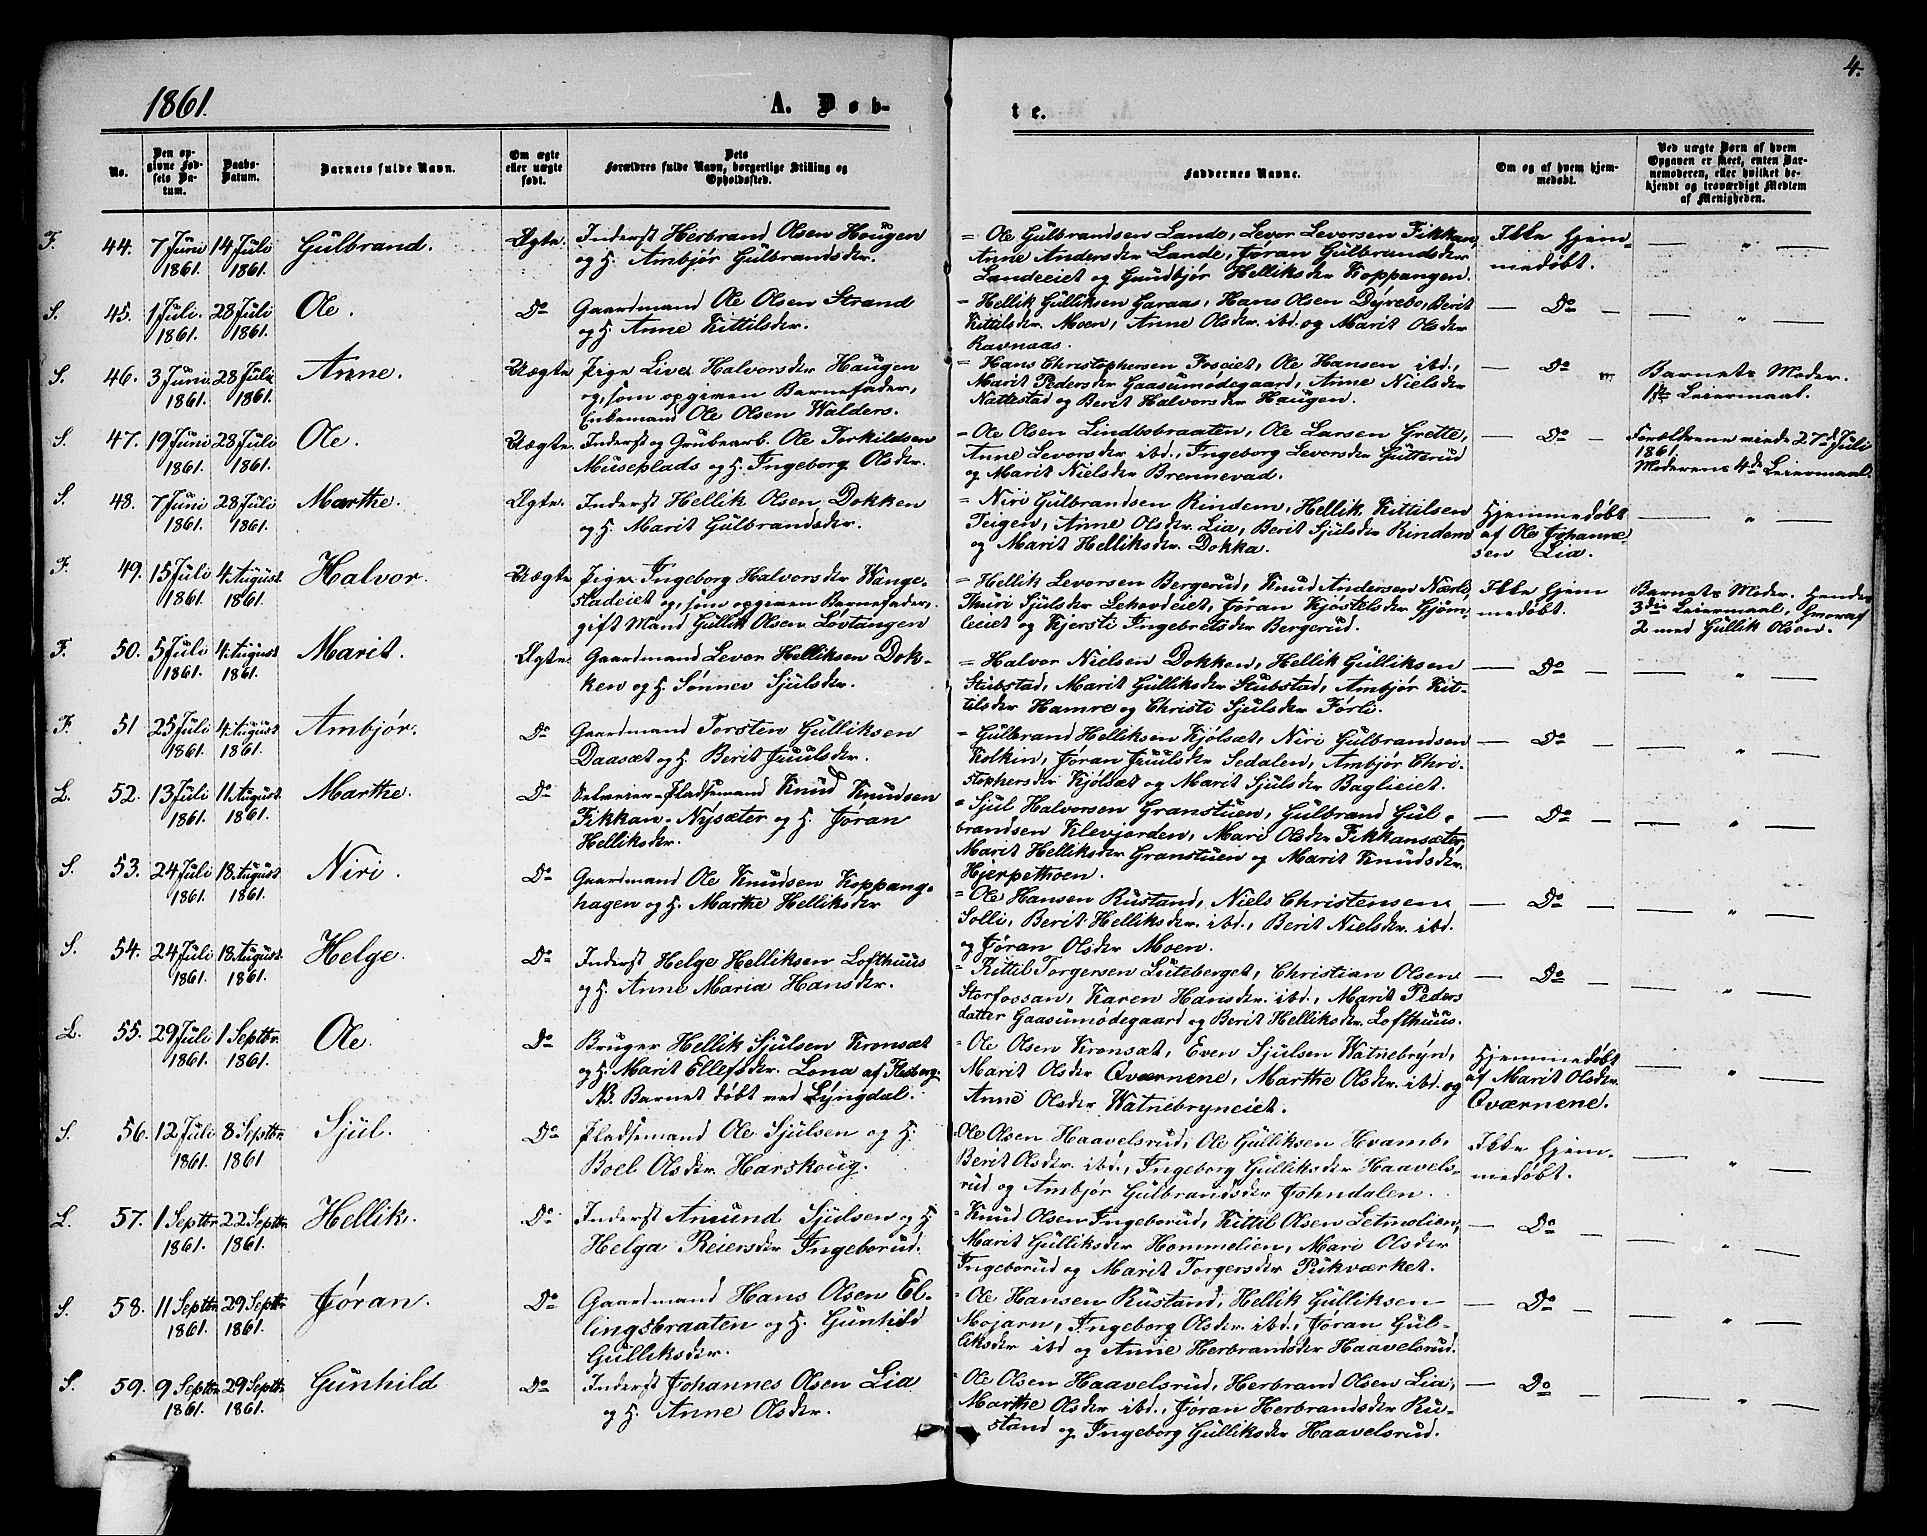 4.
1861.
A. Døb-
te.
No.
Den op-
givne Fød-
sels Da-
tum.
Daabs-
Datum.
Barnets fulde Navn.
Om ægte
eller uægte
født.
Dets
Forældres fulde Navn, borgerlige Stilling og
Opholdssted.
Faddernes Navne.
Om og af hvem hjem-
medøbt.
Ved uægte Børn af hvem
Opgaven er skeet, enten Bar-
nemoderen, eller hvilket be-
kjendt og troværdigt Medlem
af Menigheden.
F. 44. 7 Juni 1861. 14 Juli 1861. Gulbrand. Ægte.
Inderst Herbrand Olsen Haugen
og H. Ambjør Gulbrandsder.
= Ole Gulbrandsen Lande, Levor Leversen Fikkan,
Anne Andersder Lande, Jøran Gulbrandsder
Landeeiet og Gundbjør Helliksder Koppangen.
Ikke hjem-
medøbt.
— " —
S. 45. 1 Juli. 1861. 28 Juli 1861. Ole. Do
Gaardmand Ole Olsen Strand
og H. Anne Kittilsder.
= Hellik Gulliksen Garaas, Hans Olsen Dyrebo, Berit
Kittilsder Moen, Anne Olsder. ibd. og Marit Olsder
Ravnaas.
— Do —
— " —
S. 46. 3 Juni 1861. 28 Juli 1861. Anne. Uægte
Pige Live Halvorsder Haugen
og, som opgiven Barnefader,
Enkemand Ole Olsen Walders.
= Hans Christophersen Foseiet, Ole Hansen ibd.,
Marit Pedersder Gaasumødegaard, Anne Nielsder
Nattestad og Berit Halvorsder Haugen.
— Do "
Barnets Moder.
1ste Leiermaal.
S. 47. 19 Juni 1861. 28 Juli 1861. Ole. Uægte.
Inderst og Grubearb. Ole Torkildsen
Museplads og H. Ingeborg Olsder.
= Ole Olsen Lindbobraaten, Ole Larsen Grette,
Anne Levorsder ibd., Ingeborg Leversder Gutterud
og Marit Nielsder Brennevad.
— Do —
Forældrene viede 27de Juli
1861.
Moderens 4de Leiermaal.
S. 48. 7 Juni 1861. 28 Juli 1861. Marthe. Ægte.
Inderst Hellik Olsen Dokken
og H. Marit Gulbrandsder.
= Niri Gulbrandsen Rindem, Hellik Kittilsen
Teigen, Anne Olsder. Lia, Berit Sjulsder Rindem
og Marit Helliksder Dokka.
Hjemmedøbt
af Ole Johanne-
sen Lia.
— " —
F. 49. 15 Juli 1861. 4. August. 1861. Halvor. Uægte
Pige Ingeborg Halvorsder Wange-
stadeiet og, som opgiven Barnefader,
gift Mand Gullik Olsen Lovtangen
= Hellik Levorsen Bergerud, Knud Andersen Nærli,
Thuri Sjulsder Lehovdeiet, Jøran Kjøstelsder Gjøm-
leeiet og Kjersti Ingebretsder Bergerud.
Ikke hjem
medøbt.
Barnets Moder. Hendes
3die Leiermaal, hvoraf
2 med Gullik Olsen.
F. 50. 5 Juli 1861. 4. August 1861. Marit. Ægte.
Gaardmand Levor Helliksen Dok-
ken og H. Sønnev Sjulsder.
= Halvor Nielsen Dokken, Hellik Gulliksen
Stubstad, Marit Gulliksder Stubstad, Ambjør Kit-
tilsder Hamre og Christi Sjulsder Førli.
— Do —
— " —
F. 51 25 Juli 1861. 4. August. 1861. Ambjør. Do
Gaardmand Torsten Gulliksen
Daasæt og H. Berit Juulsder.
= Gulbrand Helliksen Kjølsæt, Niri Gulbrandsen
Kolkin, Jøran Juulsder Sedalen, Ambjør Chri-
stophersder Kjølsæt og Marit Sjulsder Baglieiet.
— Do —
— " —
L. 52. 13 Juli 1861. 11 August. 1861. Marthe. Do
Selveier-Pladsemand Knud Knudsen
Fikkan-Nysæter og H. Jøran
Helliksder.
= Sjul Halvorsen Granstuen, Gulbrand Gul-
brandsen Klevjorden, Mari Olsder Fikkansæter,
Marit Helliksder Granstuen og Marit Knudsder.
Hjerpethoen.
— Do —
— " —
S. 53. 24 Juli 1861. 18. August 1861. Niri. Do
Gaardmand Ole Knudsen Koppang-
hagen og H. Marthe Helliksder
= Ole Hansen Rustand, Niels Christensen
Solli, Berit Helliksder. ibd., Berit Nielsder. ibd.
og Jøran Olsder Moen.
— Do —
— " —
S. 54. 24 Juli 1861. 18. August 1861. Helge. Do
Inderst Helge Helliksen Lofthuus
og H. Anne Maria Hansder.
= Kittil Torgersen Luteberget, Christian Olsen
Storfossan, Karen Hansder. ibd., Marit Peders
datter Gaasumødegaard og Berit Helliksder. Lofthuus.
— Do —
— " —
L. 55. 29 Juli 1861. 1 Septbr. 1861. Ole. Do
Bruger Hellik Sjulsen Kronsæt
og H. Marit Ellefsder. Lona af Flesberg.
NB. Barnet døbt ved Lyngdal.
= Ole Olsen Kronsæt, Even Sjulsen Watnebryn,
Marit Olsder Qværnene, Marthe Olsder. ibd. og
Anne Olsder Watnebryneiet.
Hjemmedøbt
af Marit Olsder.
Qværnene.
— " —
S. 56. 12 Juli 1861. 8 Septbr. 1861 Sjul. Do
Pladsemand Ole Sjulsen og H.
Boel Olsder. Harskoug.
= Ole Olsen Haavelsrud, Ole Gulliksen Hvamb.
Berit Olsder. ibd., Ingeborg Gulliksder Haavels-
rud og Ambjør Gulbrandsder Johndalen.
Ikke hjem-
medøbt.
— " —
L. 57. 1 Septbr. 1861. 22 Septbr. 1861. Hellik. Do
Inderst Amund Sjulsen og H.
Helga Reiersder Ingeborud.
= Knud Olsen Ingeborud, Kittil Olsen Letmolien,
Marit Gulliksder Hommelien, Mari Olsder
Ingeborud og Marit Torgersder Pukværket.
— Do —
— " —
S. 58. 11 Septbr. 1861. 29 Septbr 1861. Jøran. Do
Gaardmand Hans Olsen El-
lingsbraaten og H. Gunhild
Gulliksder.
= Ole Hansen Rustand, Hellik Gulliksen
Mojarn, Ingeborg Olsder. ibd., Jøran Gul-
liksder ibd og Anne Herbrandsder Haavelsrud.
— Do —
— " —
S. 59. 9 Septbr. 1861. 29 Septbr. 1861. Gunhild Do
Inderst Johannes Olsen Lia
og H. Anne Olsder.
= Ole Olsen Haavelsrud, Herbrand Olsen Lia,
Marthe Olsder ibd., Jøran Herbrandsder Ru-
stand og Ingeborg Gulliksder Haavelsrud.
— Do —
— " —